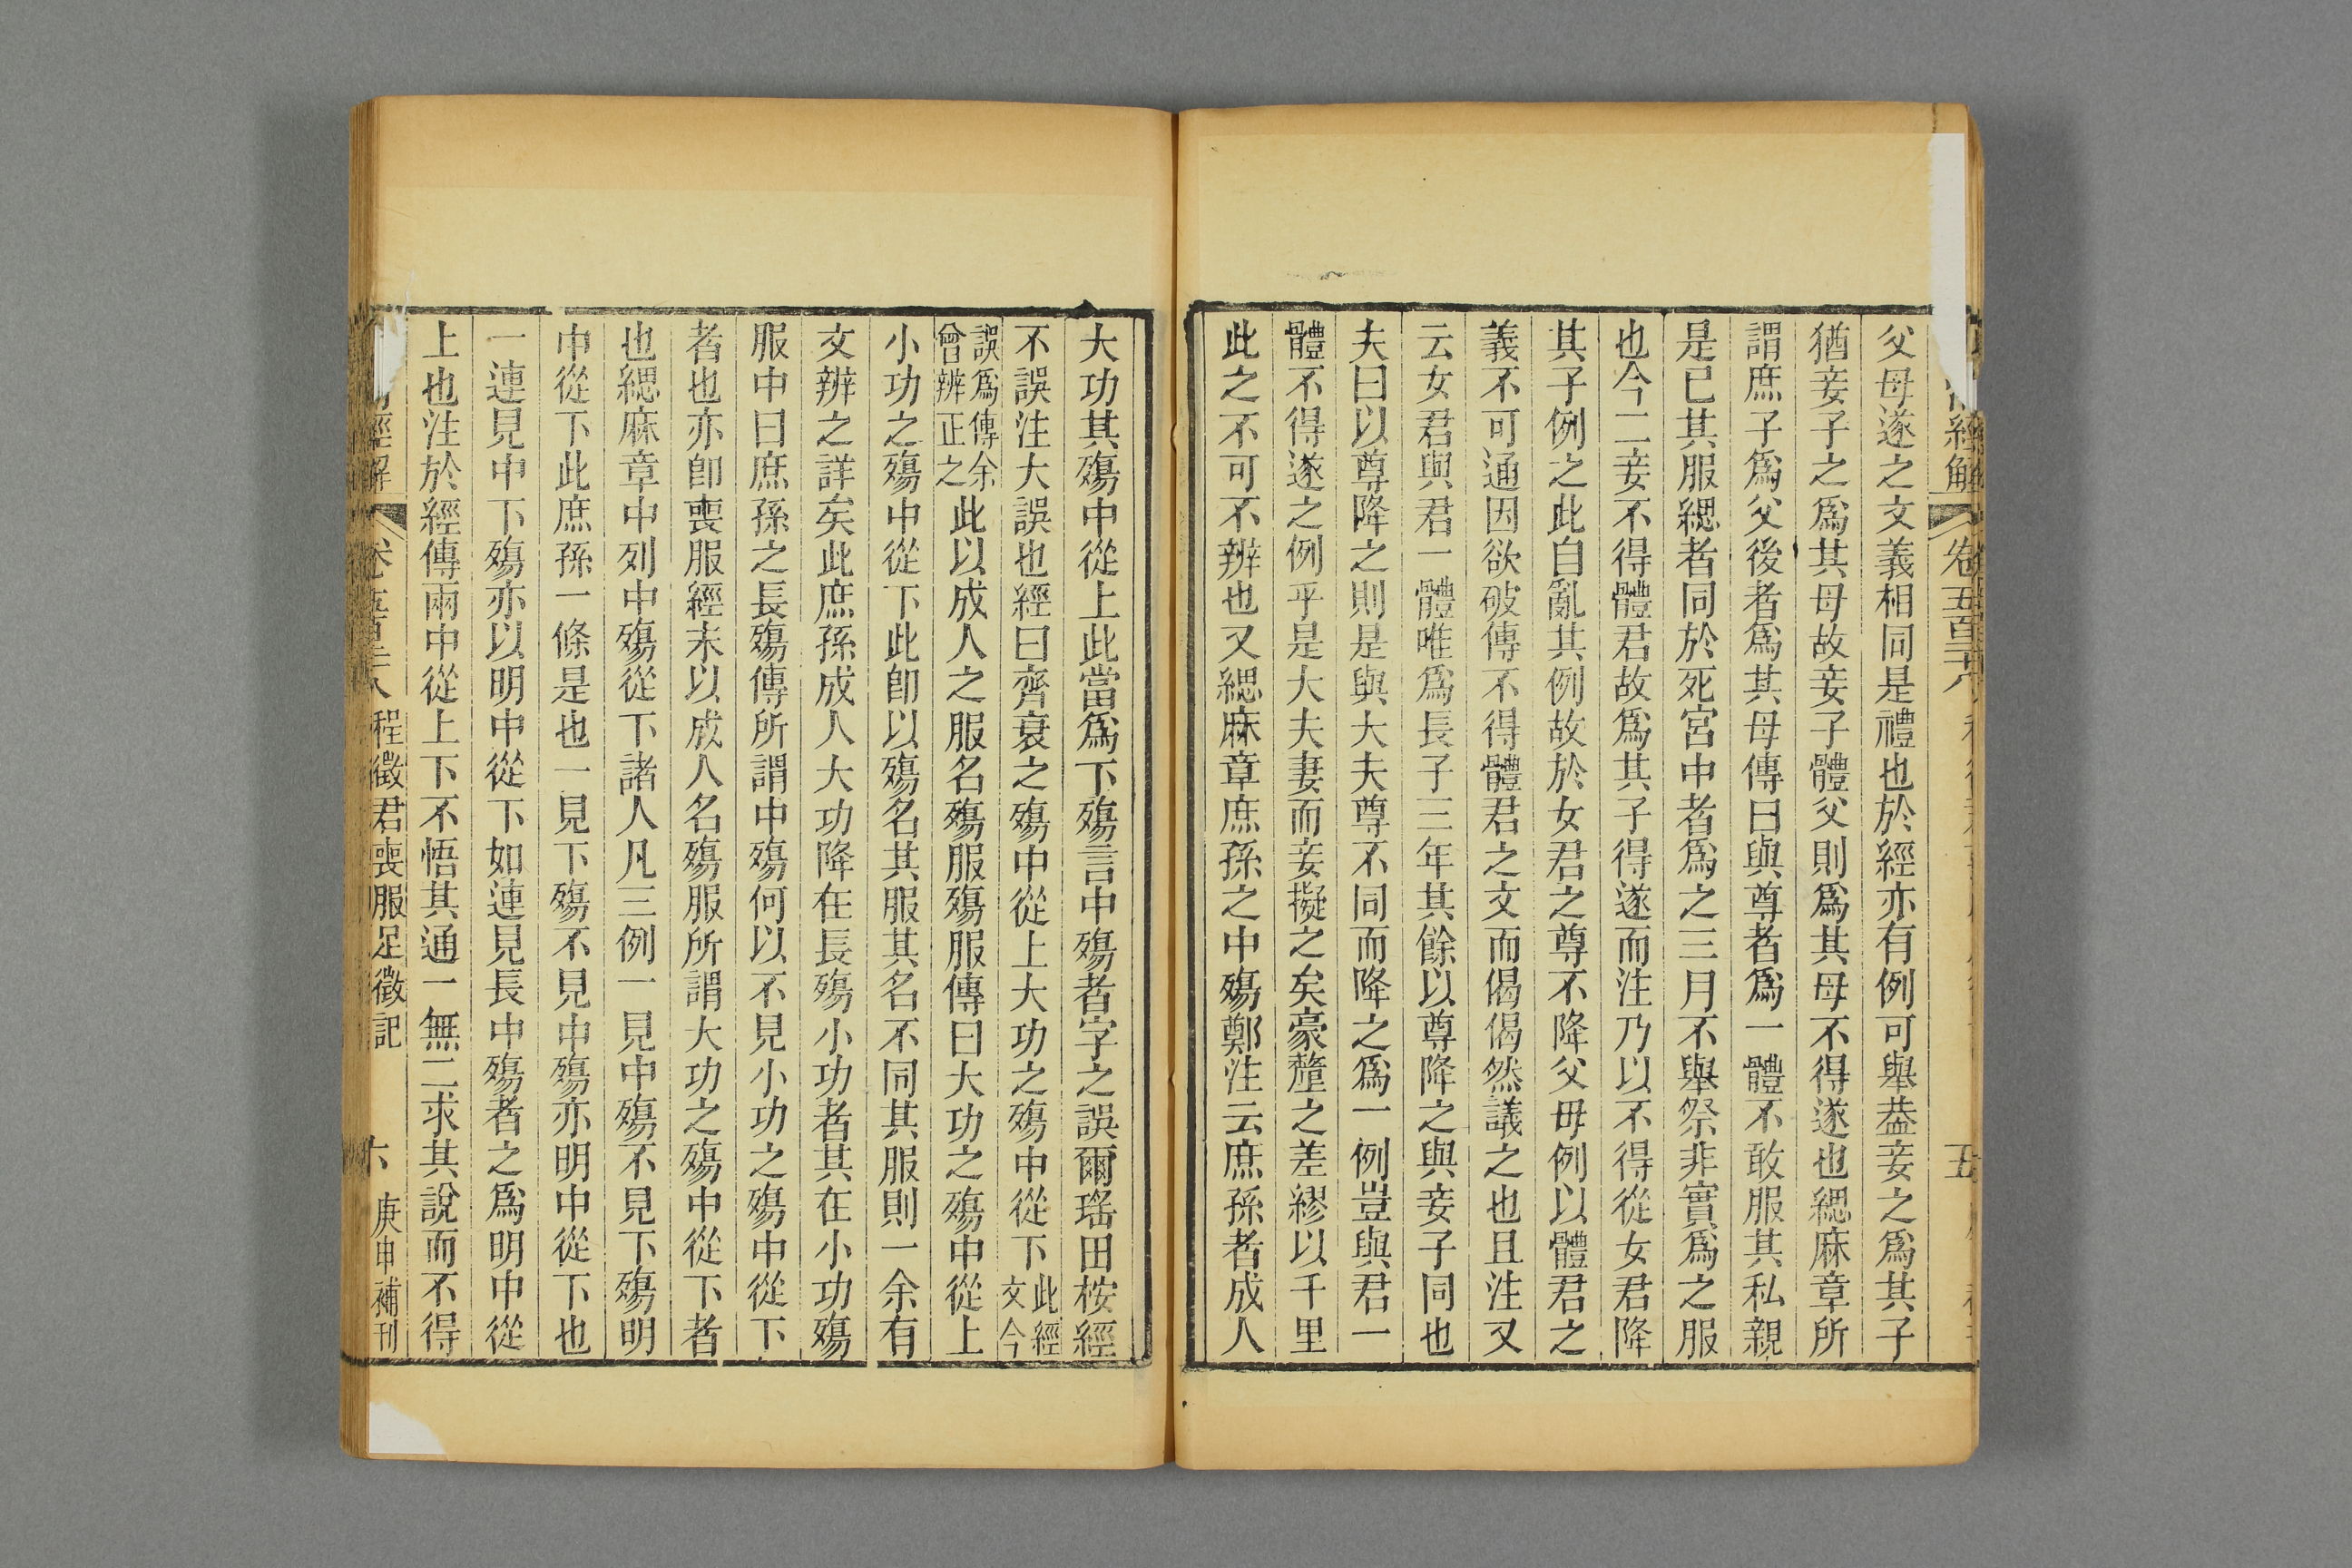 經解 卷五百二十八 五
父母遂之文義相同是禮也於經亦有例可舉葢妾之爲其子
猶妾子之爲其母故妾子體父則爲其母不得遂也緦麻章所
謂庶子爲父後者爲其母傳曰與尊者爲一體不敢服其私親
是已其服緦者同於死宮中者爲之三月不舉祭非實爲之服
也今二妾不得體君故爲其子得遂而注乃以不得從女君降
其子例之此自亂其例故於女君之尊不降父母例以體君之
義不可通因欲破傳不得體君之文而偈偈然議之也且注又
云女君與君一體唯爲長子三年其餘以尊降之與妾子同也
夫曰以尊降之則是與大夫尊不同而降之爲一例豈與君一
體不得遂之例乎是大夫妻而妾擬之矣豪釐之差繆以千里
此之不可不辨也又緦麻章庶孫之中殤鄭注云庶孫者成人
大功其殤中從上此當爲下殤言中殤者字之誤爾瑤田桉經
不誤注大誤也經曰齊衰之殤中從上大功之殤中從下此經文今
誤爲傳余曾辨正之此以成人之服名殤服殤服傳曰大功之殤中從上
小功之殤中從下此卽以殤名其服其名不同其服則一余有
文辨之詳矣此庶孫成人大功降在長殤小功者其在小功殤
服中曰庶孫之長殤傳所謂中殤何以不見小功之殤中從下
者也亦卽喪服經末以成人名殤服所謂大功之殤中從下者
也緦麻章中列中殤從下諸人凡三例一見中殤不見下殤明
中從下此庶孫一條是也一見下殤不見中殤亦明中從下也
一連見中下殤亦以明中從下如連見長中殤者之爲明中從
上也注於經傳兩中從上下不悟其通一無二求其說而不得
經解 卷五百二十八 程徵君喪服足徵記 六 庚申補刊